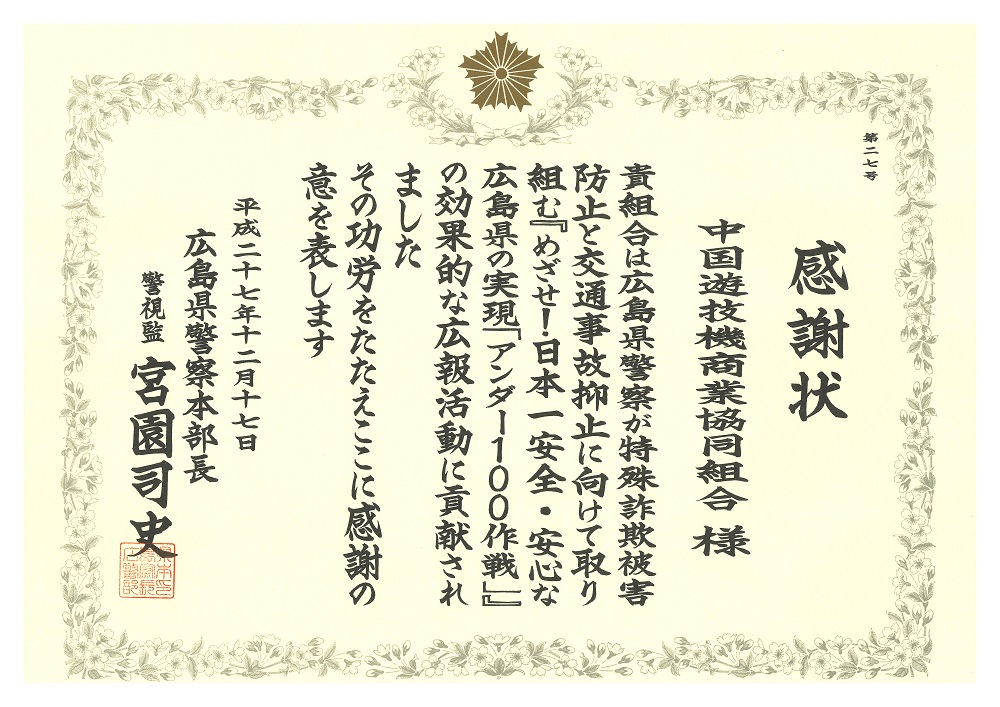 第二七号
感謝状
中国遊技機商業協同組合 様
貴組合は広島県警察が特殊詐欺被害
防止と交通事故抑止に向けて取り
組む『めざせ！日本一安全・安心な
広島県の実現「アンダー１００作戦」』
の効果的な広報活動に貢献され
ました
その功労をたたえここに感謝の
意を表します
平成二十七年十二月十七日
広島県警察本部長
警視監 宮園司史